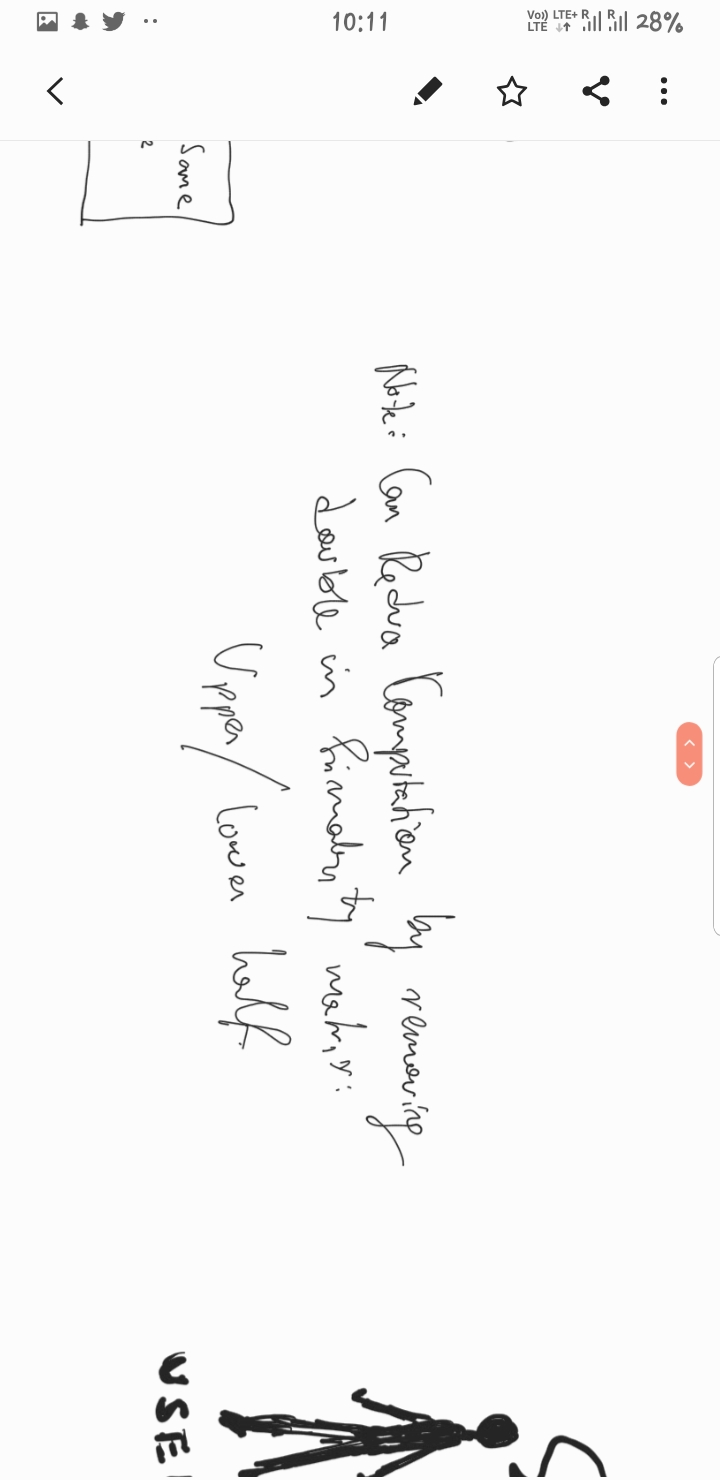 10:11
Vo)) LTE+ R R 28%
LTE
Same
2
Note: Can Reduce Computation by removing
double in Similarity matrix:
Upper/ lower half
USE